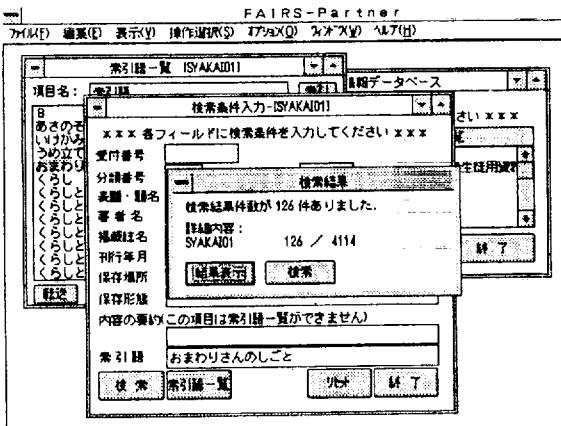 FAIRS-Partner
ファイル(F) 編集(E) 表示(V) 操作選択(S) オプション(O) ウィンドウ(W) ヘルプ(H)
索引語一覧 [SYAKAI01]
項目名： 索引語
B
あさのそ
いけがみ
うめ立て
おまわり
くらし
くらしと
くらしと
くらしと
くらしと
くらしと
くらしと
転送
情報データベース
さい ＊＊＊
終 了
検索条件入力-[SYAKAI01]
＊＊＊ 各フィールドに検索条件を入力してください ＊＊＊
受付番号
分類番号
表題・題名
著者名
掲載誌名
刊行年月
保存場所
保存形態
内容の要約(この項目は索引語一覧ができません)
索引語 おまわりさんのしごと
検 索 索引語一覧 リセット 終 了
検索結果
検索結果件数が 126 件ありました.
詳細内容：
SYAKAI01 126 ／ 4114
結果表示 検索